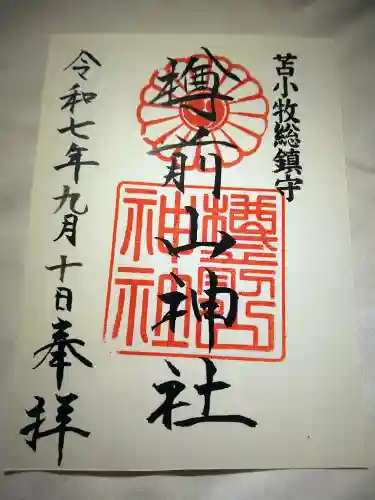 苫小牧総鎮守
樽前山神社
令和七年九月十日奉拝